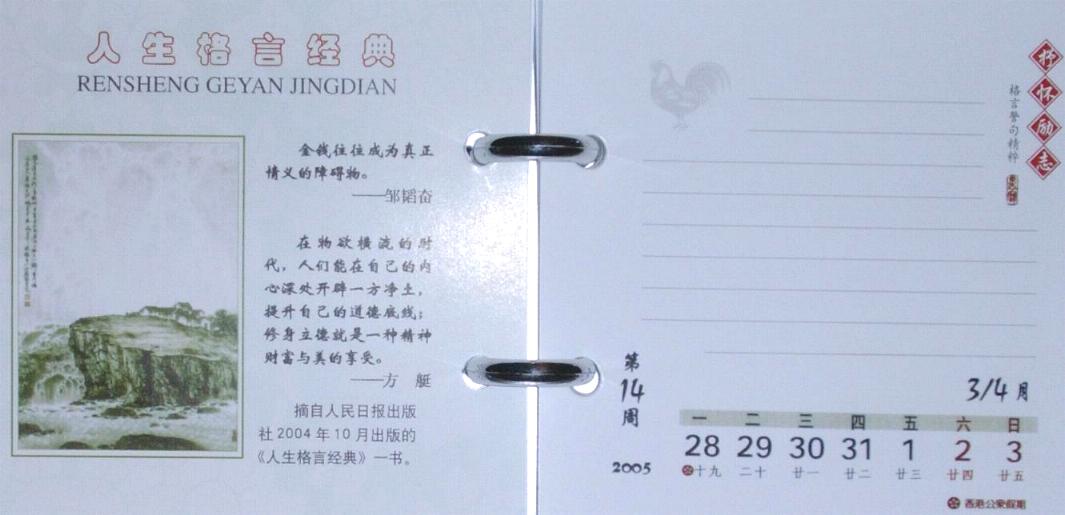 人生格言经典
RENSHENG GEYAN JINGDIAN
金钱往往成为真正
情义的障碍物。
——邹韬奋
在物欲横流的时
代，人们能在自己的内
心深处开辟一方净土，
提升自己的道德底线；
修身立德就是一种精神
财富与美的享受。
——方 艇
摘自人民日报出版
社2004年10月出版的
《人生格言经典》一书。
抒怀励志
格言警句精粹
第
14
周
2005
3/4月
一 二 三 四 五 六 日
28 29 30 31 1 2 3
十九 二十 廿一 廿二 廿三 廿四 廿五
香港公眾假期